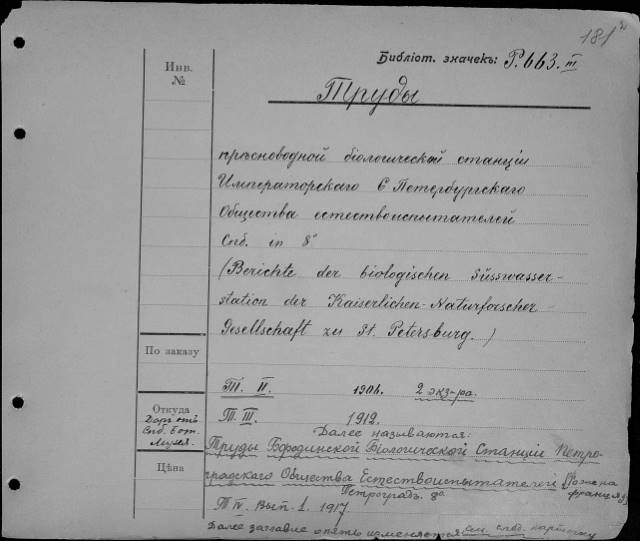 181
Инв. №
Библіот. значекъ: Р.663. III
Труды
прѣсноводной біологической станціи
Императорскаго С Петербургскаго
Общества естествоиспытателей
Спб. in 8°
(Berichte der biologischen Süsswasser-
station der Kaiserlichen-Naturforscher
Gesellschaft zu St. Petersburg.)
По заказу
Т. II. 190 2 экз-ра.
Откуда
Т. III. 1912.
Спб. Бот.
Музея.
Далее называются:
Труды Бородинской Біологической Станціи Петро-
градскаго Общества Естествоиспытателей
Тоже на
француз
Цѣна
Петроградъ 8°
Т IV. Вып. 1. 1917
Далее заглавие опять изменяется см. след. карточку